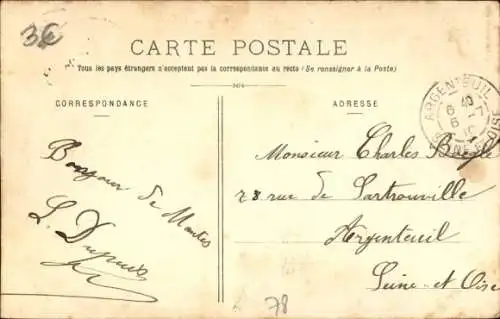 3€
CARTE POSTALE
Tous les pays étrangers n'acceptent pas la correspondance au recto (Se renseigner à la Poste)
CORRESPONDANCE
ADRESSE
ARGENTEUIL
Bonjour de Mantes
L. Dupuis
Monsieur Charles
78 rue de Sartrouville
Argenteuil
Seine-et Oise
78